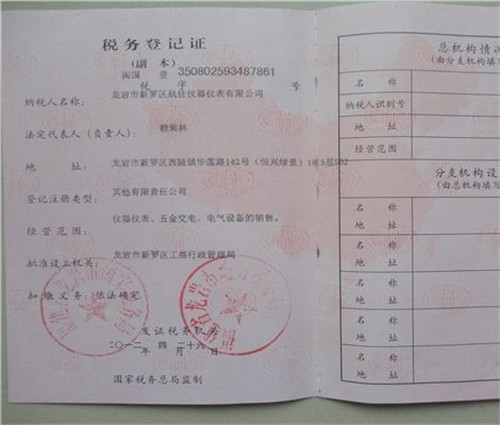 税务登记证
(副 本)
闽国 登 350802593487861
税 字 号
纳税人名称: 龙岩市新罗区航佳仪器仪表有限公司
法定代表人(负责人): 赖菊林
地 址: 龙岩市新罗区西陂镇华莲路142号(恒兴绿景)1幢5层502
登记注册类型: 其他有限责任公司
经营范围: 仪器仪表、五金交电、电气设备的销售。
批准设立机关: 龙岩市新罗区工商行政管理局
扣缴义务: 依法确定
发证税务机关
二〇一二年 四 月 二十六 日
国家税务总局监制
总机构情况
(由分支机构填写
名 称
纳税人识别号
地 址
经营范围
分支机构设
(由总机构填写
名 称
地 址
名 称
地 址
名 称
地 址
名 称
地 址
名 称
地 址